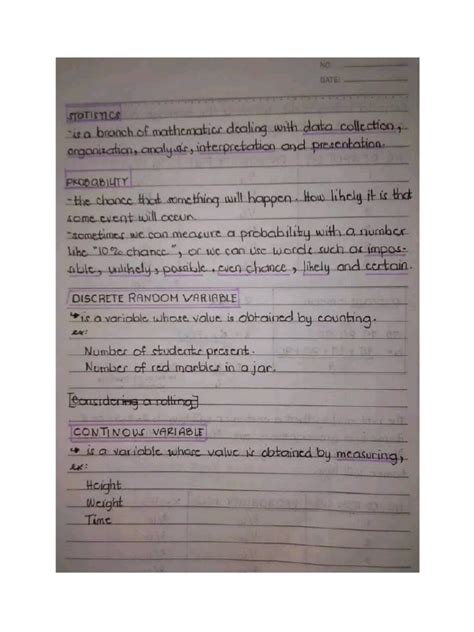 NO.
DATE:
STATISTICS
-is a branch of mathematics dealing with data collection,
organization, analysis, interpretation and presentation.
PROBABILITY
-the chance that something will happen. How likely it is that
some event will occur.
-sometimes we can measure a probability with a number
like "10% chance", or we can use words such as impos-
sible, unlikely, possible, even chance, likely and certain.
DISCRETE RANDOM VARIABLE
↳is a variable whose value is obtained by counting.
ex:
Number of students present.
Number of red marbles in a jar.
[Considering a rolling]
CONTINOUS VARIABLE
↳ is a variable whose value is obtained by measuring,
ex:
Height
Weight
Time